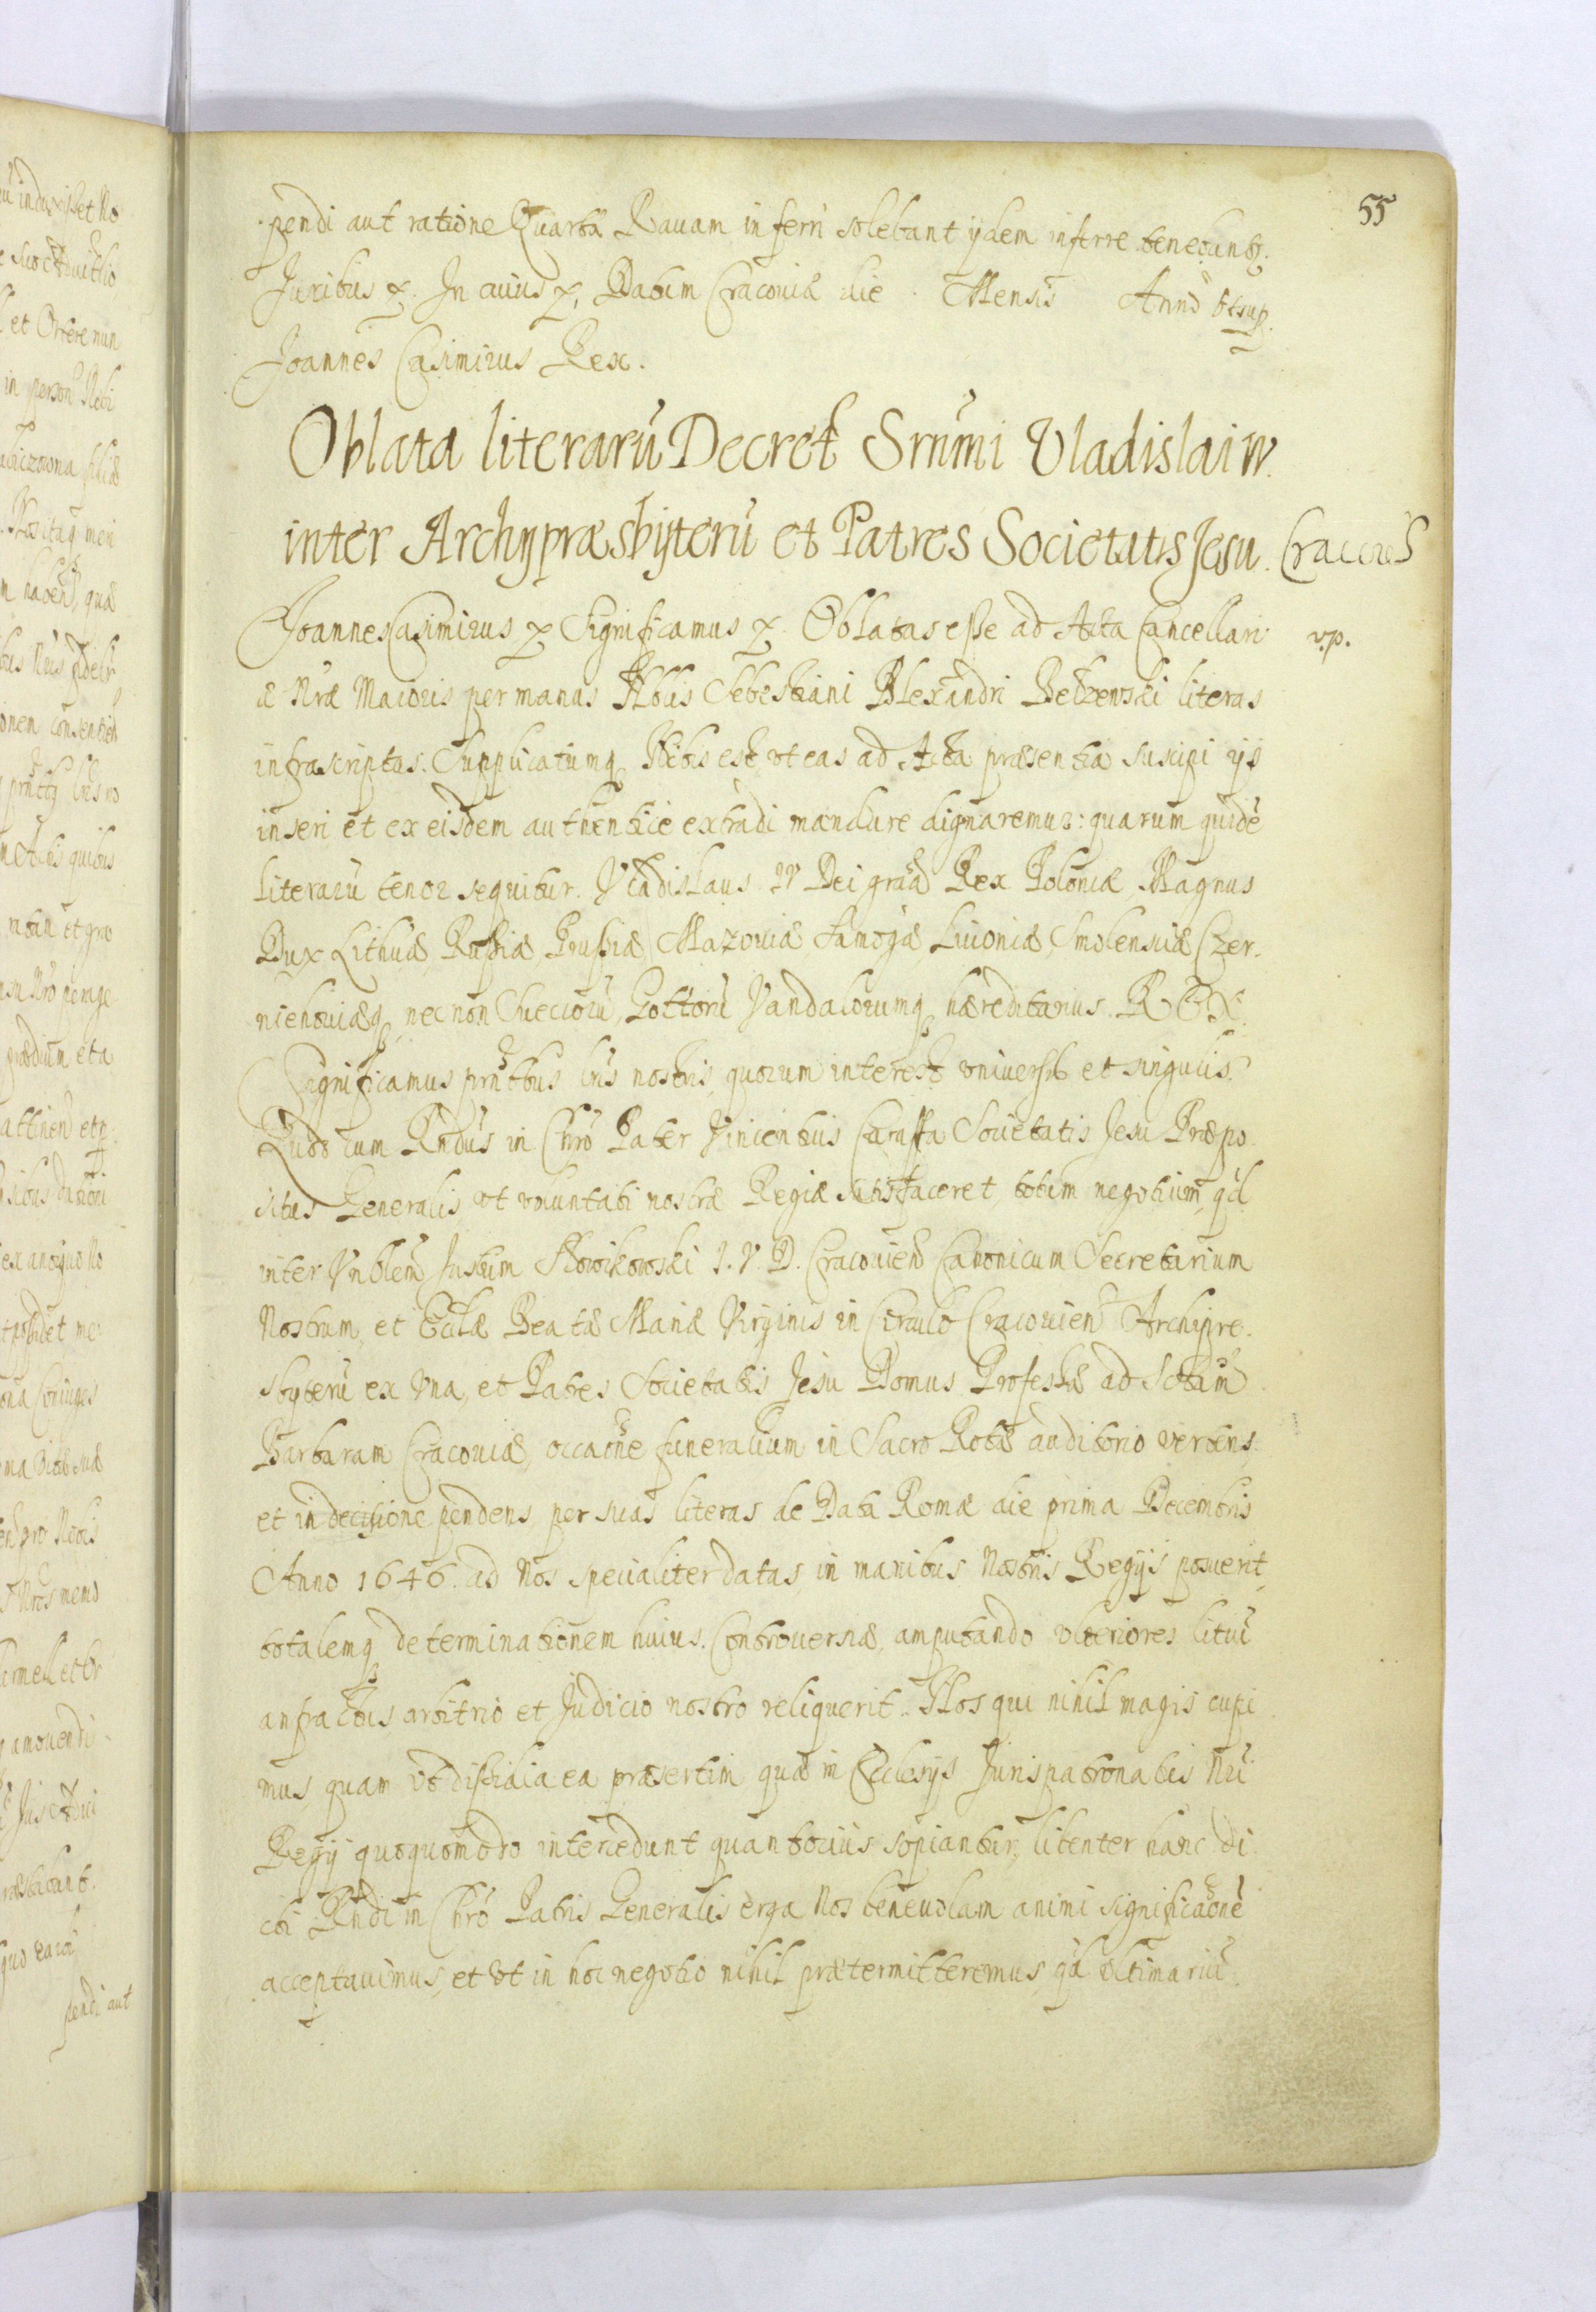 55
pendi aut ratione Quartæ Rauam inferri solebant ijdem inferre tenebunt.
Juribus &. In cuius &. Datum Cracouiæ die Mensis Anno vt sup.
Joannes Casimirus Rex.
Oblata literarũ Decret Srñmi Vladislai IV.
inter Archypræsbyterũ et Patres Societatis Jesu. Cracoues
Joannes Casimirus & Significamus & Oblatas esse ad Acta Cancellari
æ Nræ Maioris per manus Nblis Sebestiani Alexandri literas v.p.
infrascriptas. Supplicatumq Nobis est vt eas ad Acta præsentia suscipi ijs
inseri et ex eisdem authentice extradi mandare dignaremur: quarum quidẽ
literarũ tenor sequitur. Vladislaus IV Dei graã Rex Poloniæ Magnus
Dux Lithuæ, Russiæ, Prussiæ Mazouiæ Samogæ Liuoniæ, Smolensciæ Czer-
niehouiæq, necnon Suecorũ, Gottorũ Vandalorumq hæreditarius REX.
Significamus prñtbus lris nostris, quorum interest vniuersis et singulis.
Quod cum Rñdus in Chrõ Pater Vincentius Caraffa Societatis Jesu Præpo
situs Generalis vt voluntati nostræ Regiæ satisfaceret totum negotium, qd
inter Vnblem Justum Słowikowski J.V.D. Cracouien Canonicum Secretarium
Nostrum, et Ecclæ Beatæ Mariæ Virginis in Circulo Cracouien Archipre-
sbyterũ ex Vna, et Patres Societatis Jesu Domus Professæ ad Sctam
Barbaram Cracouiæ, occaõne funeralium in Sacro Rotæ auditorio vertens,
et in decisione pendens per suas literas de Data Romæ die prima Decembris
Anno 1646. ad Nos specialiter datas, in manibus Nostris Regijs posuerit,
totalemq determinationem huius Controuersiæ, amputando vlteriores litiũ
anfractus, arbitrio et Judicio nostro reliquerit. Nos qui nihil magis cupi
mus quam vt dissidia ea præsertim quæ in Ecclesijs Jurispatronatus Nri
Regij quoquomodo intercedunt quantocius sopiantur, libenter hanc di
cti Rñdi in Chrõ Patris Generalis erga Nos beneuolam animi significaonẽ
acceptauimus, et vt in hoc negotio nihil prætermitteremus, qd vltimariũ